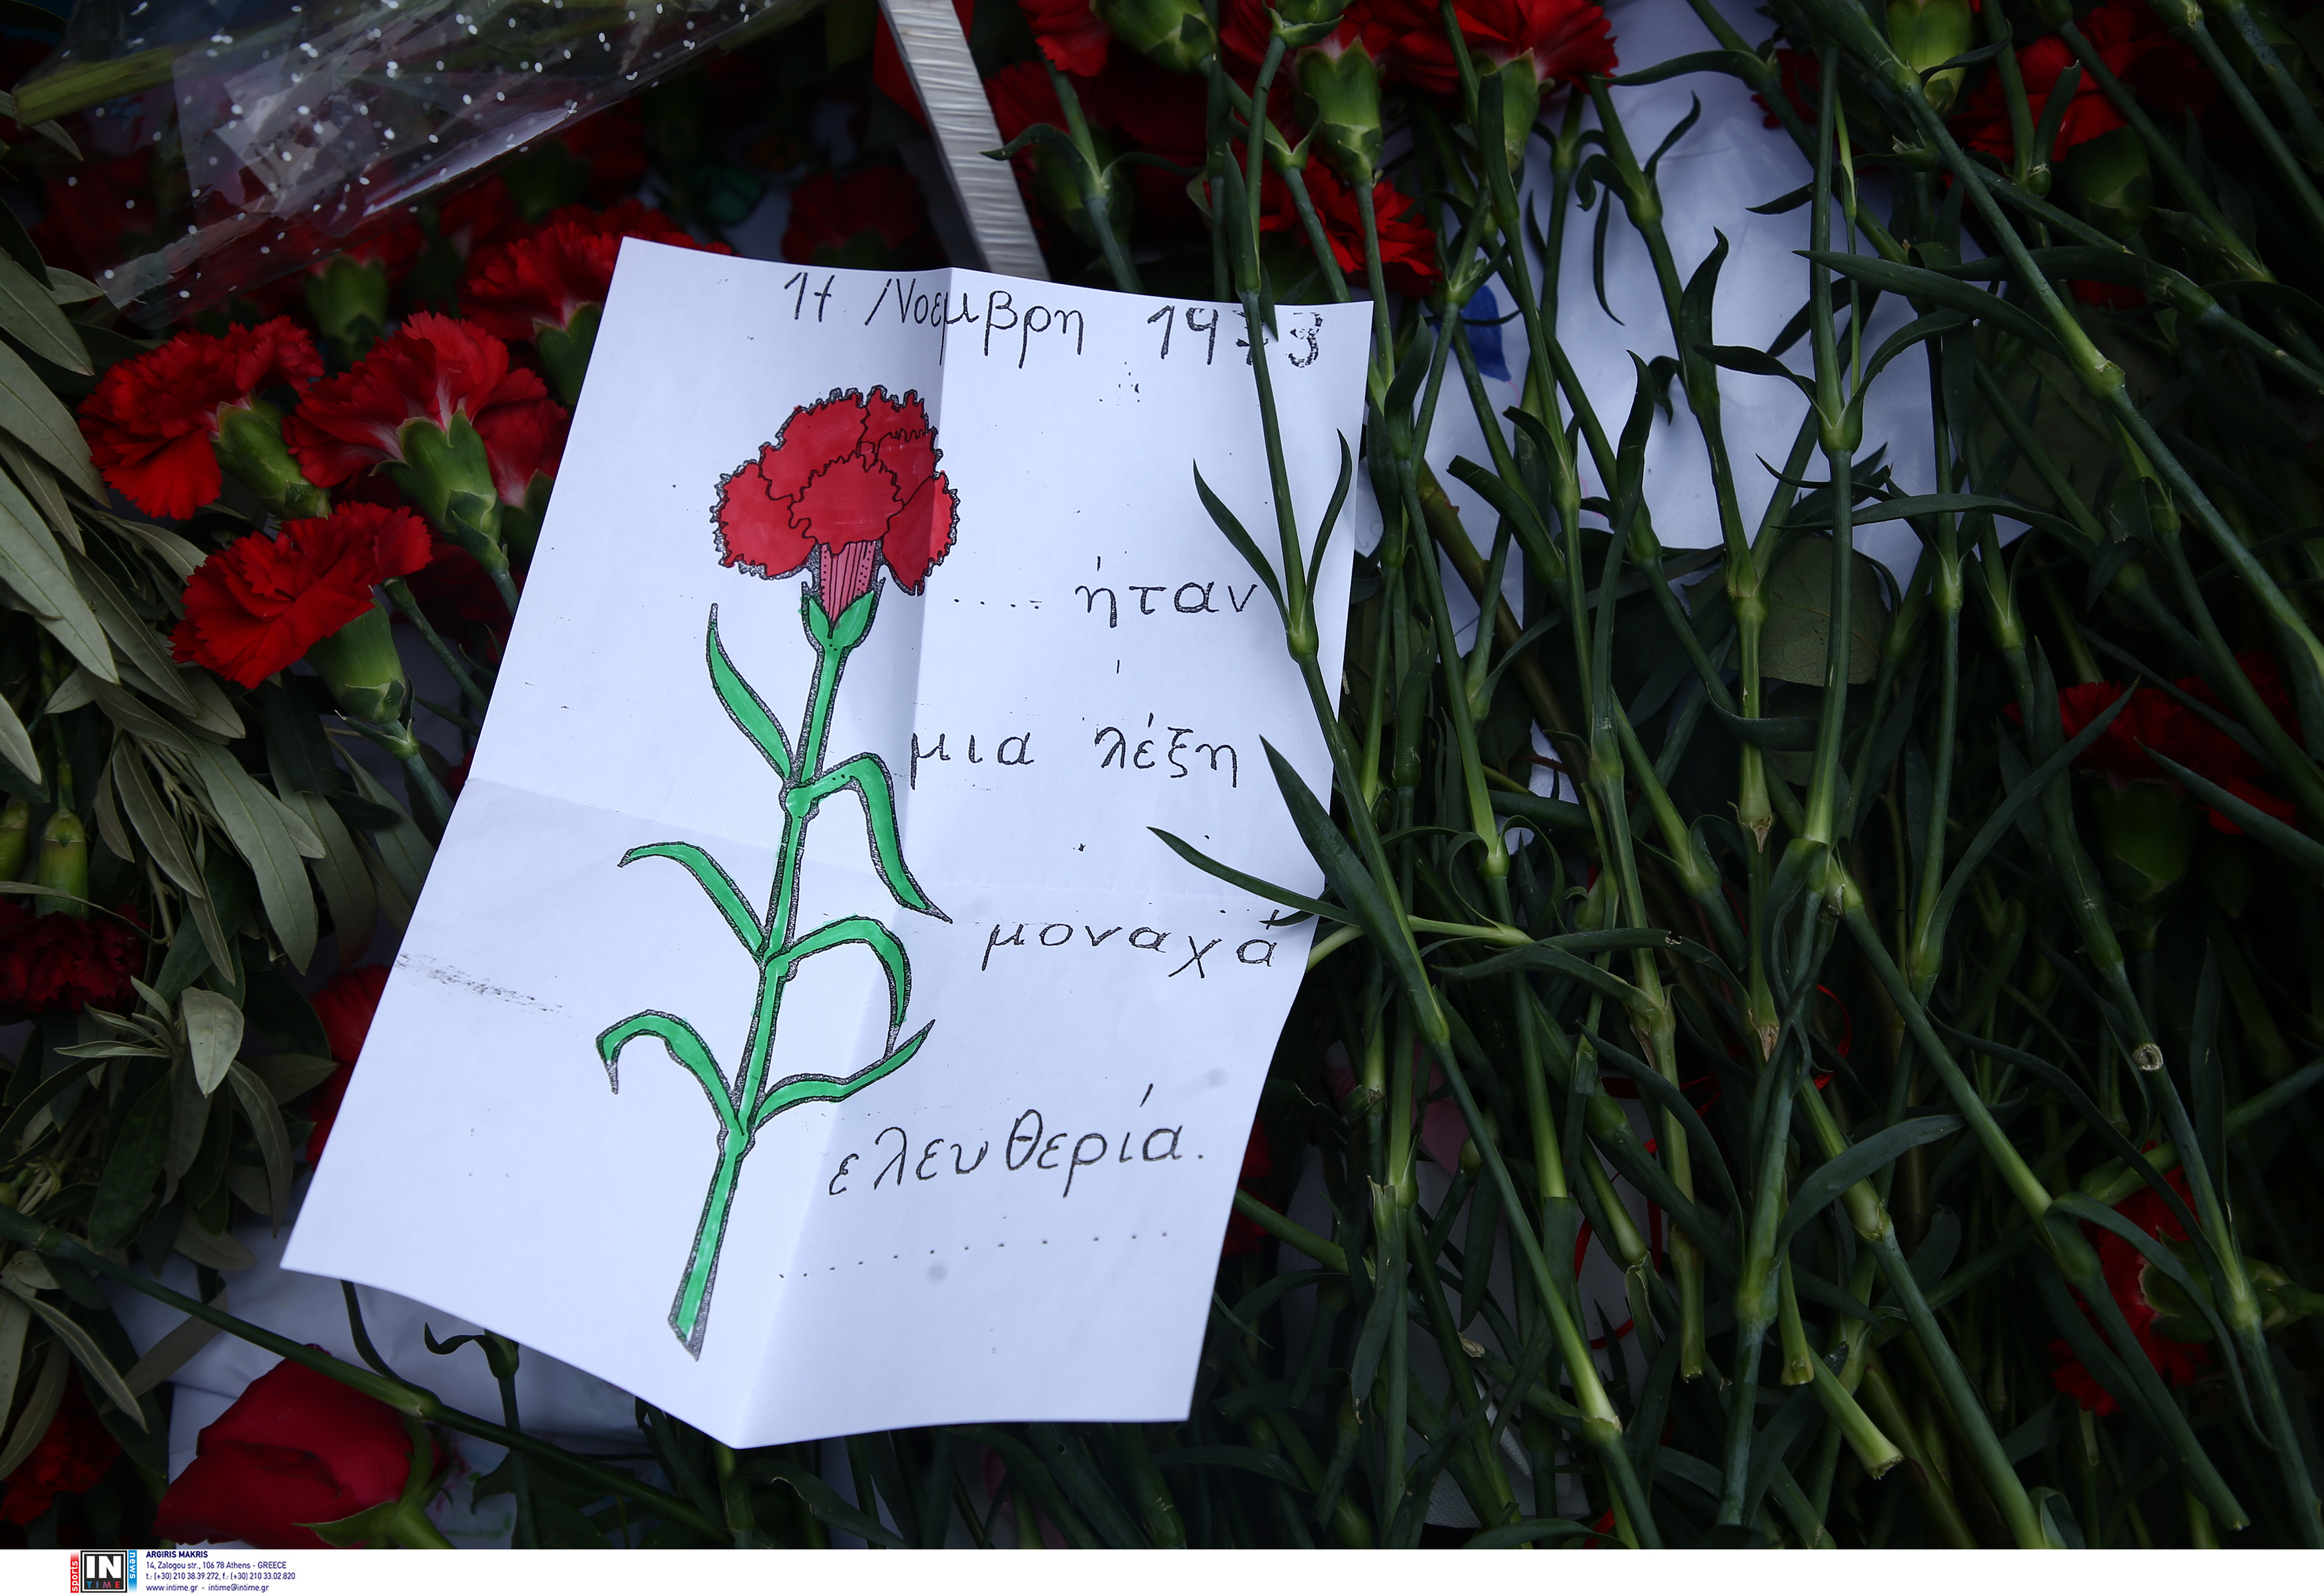 17 Νοεμβρη 1973
.... ήταν
μια λέξη
μοναχά
ελευθερία.
..........
sports
IN
TIME
news
ARGIRIS MAKRIS
14, Zalogou str., 106 78 Athens - GREECE
t.: (+30) 210 38.39.272, f.: (+30) 210 33.02.820
www.intime.gr - intime@intime.gr